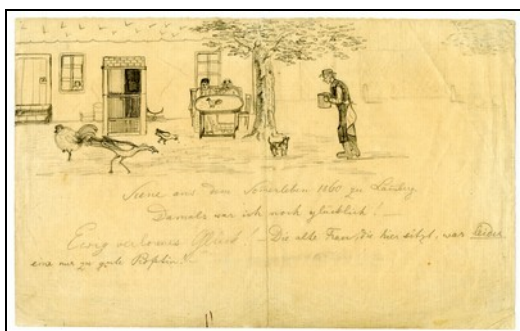 Scene aus dem 1860 zu
Damals war ich noch glücklich! —
Ewig verlornes Glück! — Die alte Frau, die hier sitzt, war leider
eine nur zu gute